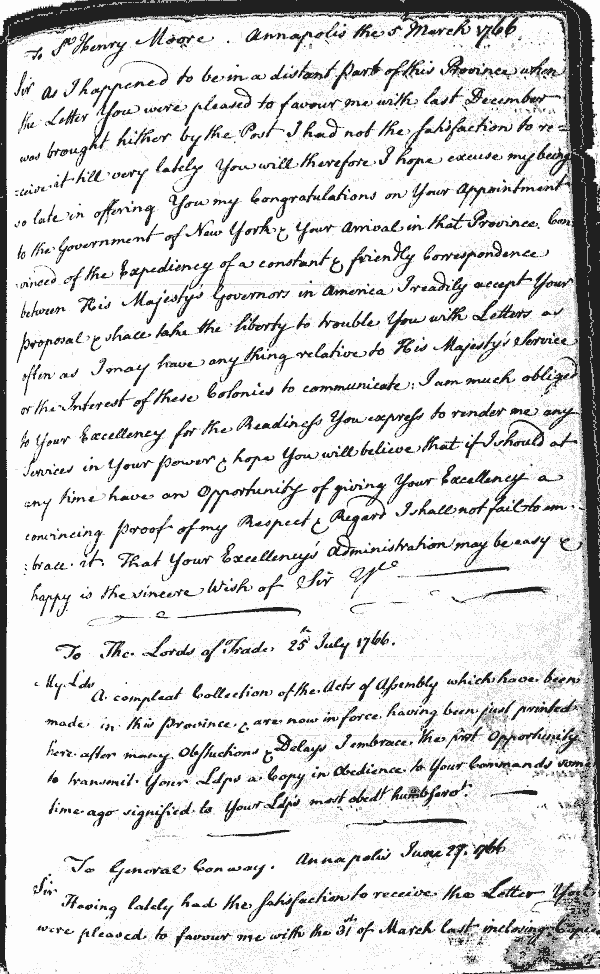 To Sr. Henry Moore. Annapolis the 5th March 1766
Sir As I happened to be in a distant Part of this Province when
the Letter You were pleased to favour me with last December
was brought hither by the Post I had not the Satisfaction to re=
=ceive it till very lately You will therefore I hope excuse my being
so late in offering You my Congratulations on Your Appointment
to the Government of New York & Your Arrival in that Province. Con
vinced of the Expediency of a constant & friendly Correspondence
between His Majesty's Governors in America I readily accept Your
Proposal & shall take the liberty to trouble You with Letters as
often as I may have any thing relative to His Majesty's Service
or the Interest of these Colonies to communicate; I am much obliged
to Your Excellency for the Readiness You express to render me any
Services in Your Power & hope You will believe that if I should at
any time have an Opportunity of giving Your Excellency a
convincing Proof of my Respect & Regard I shall not fail to em-
:brace it. That Your Excellency's Administration may be easy &
happy is the sincere Wish of Sir Yrs
To The Lords of Trade. 25th July 1766.
My Lds A compleat Collection of the Acts of Assembly which have been
made in this Province & are now in force having been just printed
here after many Obstructions & Delays I embrace the first Opportunity
to transmit Your Ldps a Copy in Obedience to Your Commands some
time ago signified to Your Ldps most obedt humb Servt.
To General Conway. Annapolis June 27. 1766
Sir Having lately had the Satisfaction to receive the Letter You
were pleased to favour me with the 31st of March last inclosing Copies